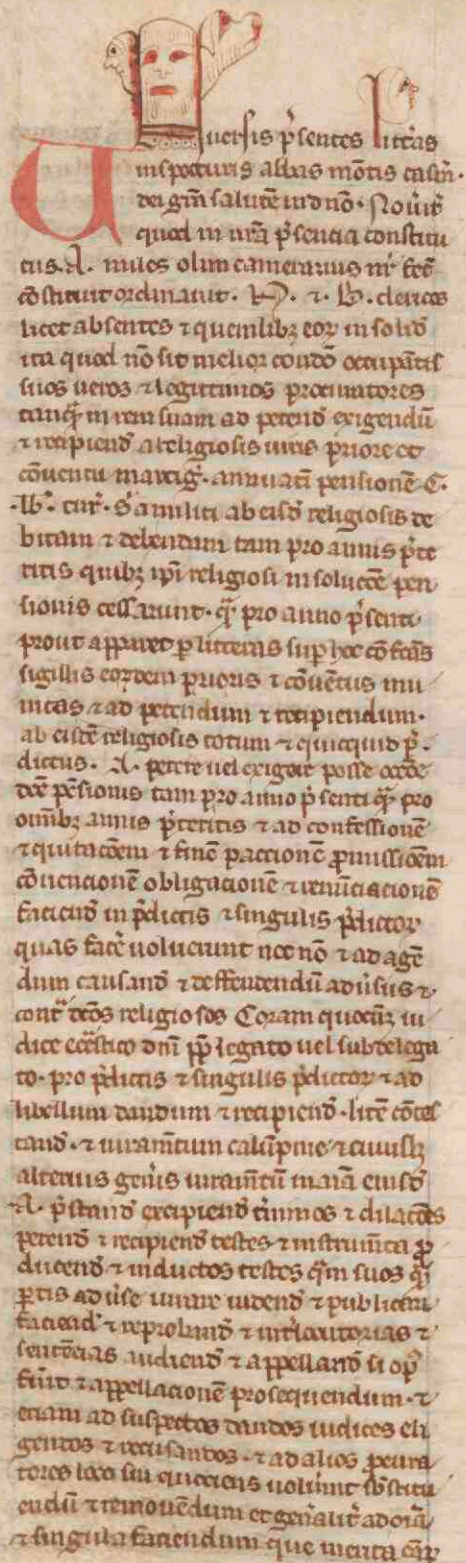 Uniuersis p̄sentes litt̄as
inspecturis abbas mōtis castri·
dei gr̄a salutē in dn̄o· Nou̅it̅
quod in n̄ra p̄sencia constitu
tus· A· miles olim camerarius nr̄ fec̄
cōstituit ordinauit· P· ⁊ B· clericos
licet absentes ⁊ quemlibꝫ eoꝝ in solid̄
ita quod nō sit melior condō occupātis
suos ueros ⁊ legittimos procuratores
tanq̄ in rem suam ad petend̄ exigendū
⁊ recipiend̄ a religiosis uiris p̄iore et
cōuentu· annuatī pensionē C·
lb̄· tur̄· militi ab eisd̄ religiosis de
bitam ⁊ debendam tam pro annis p̄te
ritis quibꝫ ip̄i religiosi in soluc̄ōe pen
sionis cessarunt· q̄ pro anno p̄senti
prout apparet p̱ litteras sup̱ hoc cōfc̄as
sigillis eorꝺem p̱rioris ⁊ cōuentus mu
nitas ⁊ ad petendum ⁊ recipiendum·
ab eisdē religiosis totum ⁊ quicquid p̄·
dictus· A· petere uel exigere posset occ̄oe
dc̄e pēsionis tam pro anno p̄senti q̄ pro
omībꝫ annis p̄teritis ⁊ ad confessionē
⁊ quitacōem ⁊ finē paccionē p̱missiōem
cōuencionē obligacionē ⁊ renūciacionē
faciend̄ in p̄dictis ⁊ singulis p̄dictoꝝ
quas facē uoluerint nec nō ⁊ ad agē
dum causand̄ ⁊ deffendendū aduersus ⁊
cont̄ dc̄os religiosos Coram quocūꝫ iu
dice ecc̄astico dn̄i pp̄ legato uel subdelega
to· pro p̄dictis ⁊ singulis p̄dictoꝝ ⁊ ad
libellum dandum ⁊ recipiend̄· litē cōtes
tand̄· ⁊ iuram̄tum calūpnie ⁊ cuiuslꝫ
alterius gen̄is iuram̄tū in aīa eiusd̄
A· p̄stand̄ excipiend̄ t̄minos ⁊ dilacōes
petend̄ ⁊ recipiend̄ testes ⁊ instrum̄ta p̱
ducend̄ ⁊ inductos testes suos q̄
p̱tis adūse iurare uidend̄ ⁊ publicari
faciend̄ ⁊ reproband̄ ⁊ int̄locutorias ⁊
sentēcias audiend̄ ⁊ appelland̄ si op̄
fūit ⁊ appellacionē prosequendum· ⁊
eciam ad suspectos dandos iudices eli
gendos ⁊ recusandos· ⁊ ad alios p̱cura
tores loco sui quociens uolūint s̄bstitu
endū ⁊ remouēdum et gen̄alit̄ ad oīa
⁊ singula faciendum que merita cār